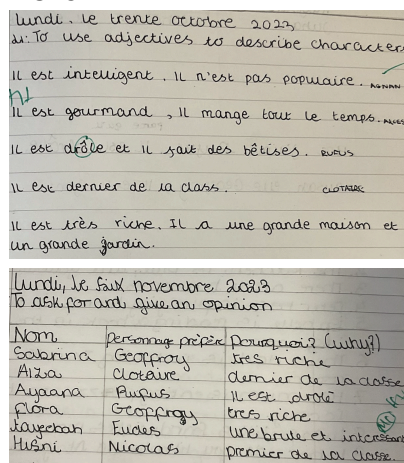 lundi, le trente octobre 2023
LI: To use adjectives to describe characters
Il est intelligent. Il n'est pas populaire. AGNAN
Il est gourmand, il mange tout le temps.
Il est drôle et il fait des bêtises. RUFUS
Il est dernier de la class. CLOTAIRE
Il est très riche. Il a une grande maison et
un grande jardin.
Lundi, le novembre 2023
To ask for and give an opinion
Nom personnage préféré pourquoi? (why?)
Sabrina Geoffroy très riche
Aiza Clotaire dernier de la classe
Ayaana Rufus Il est drole
Flora Geoffrogy tres riche
Tayebah Eudes une brute et interessant
Husni Nicolas premier de la classe.